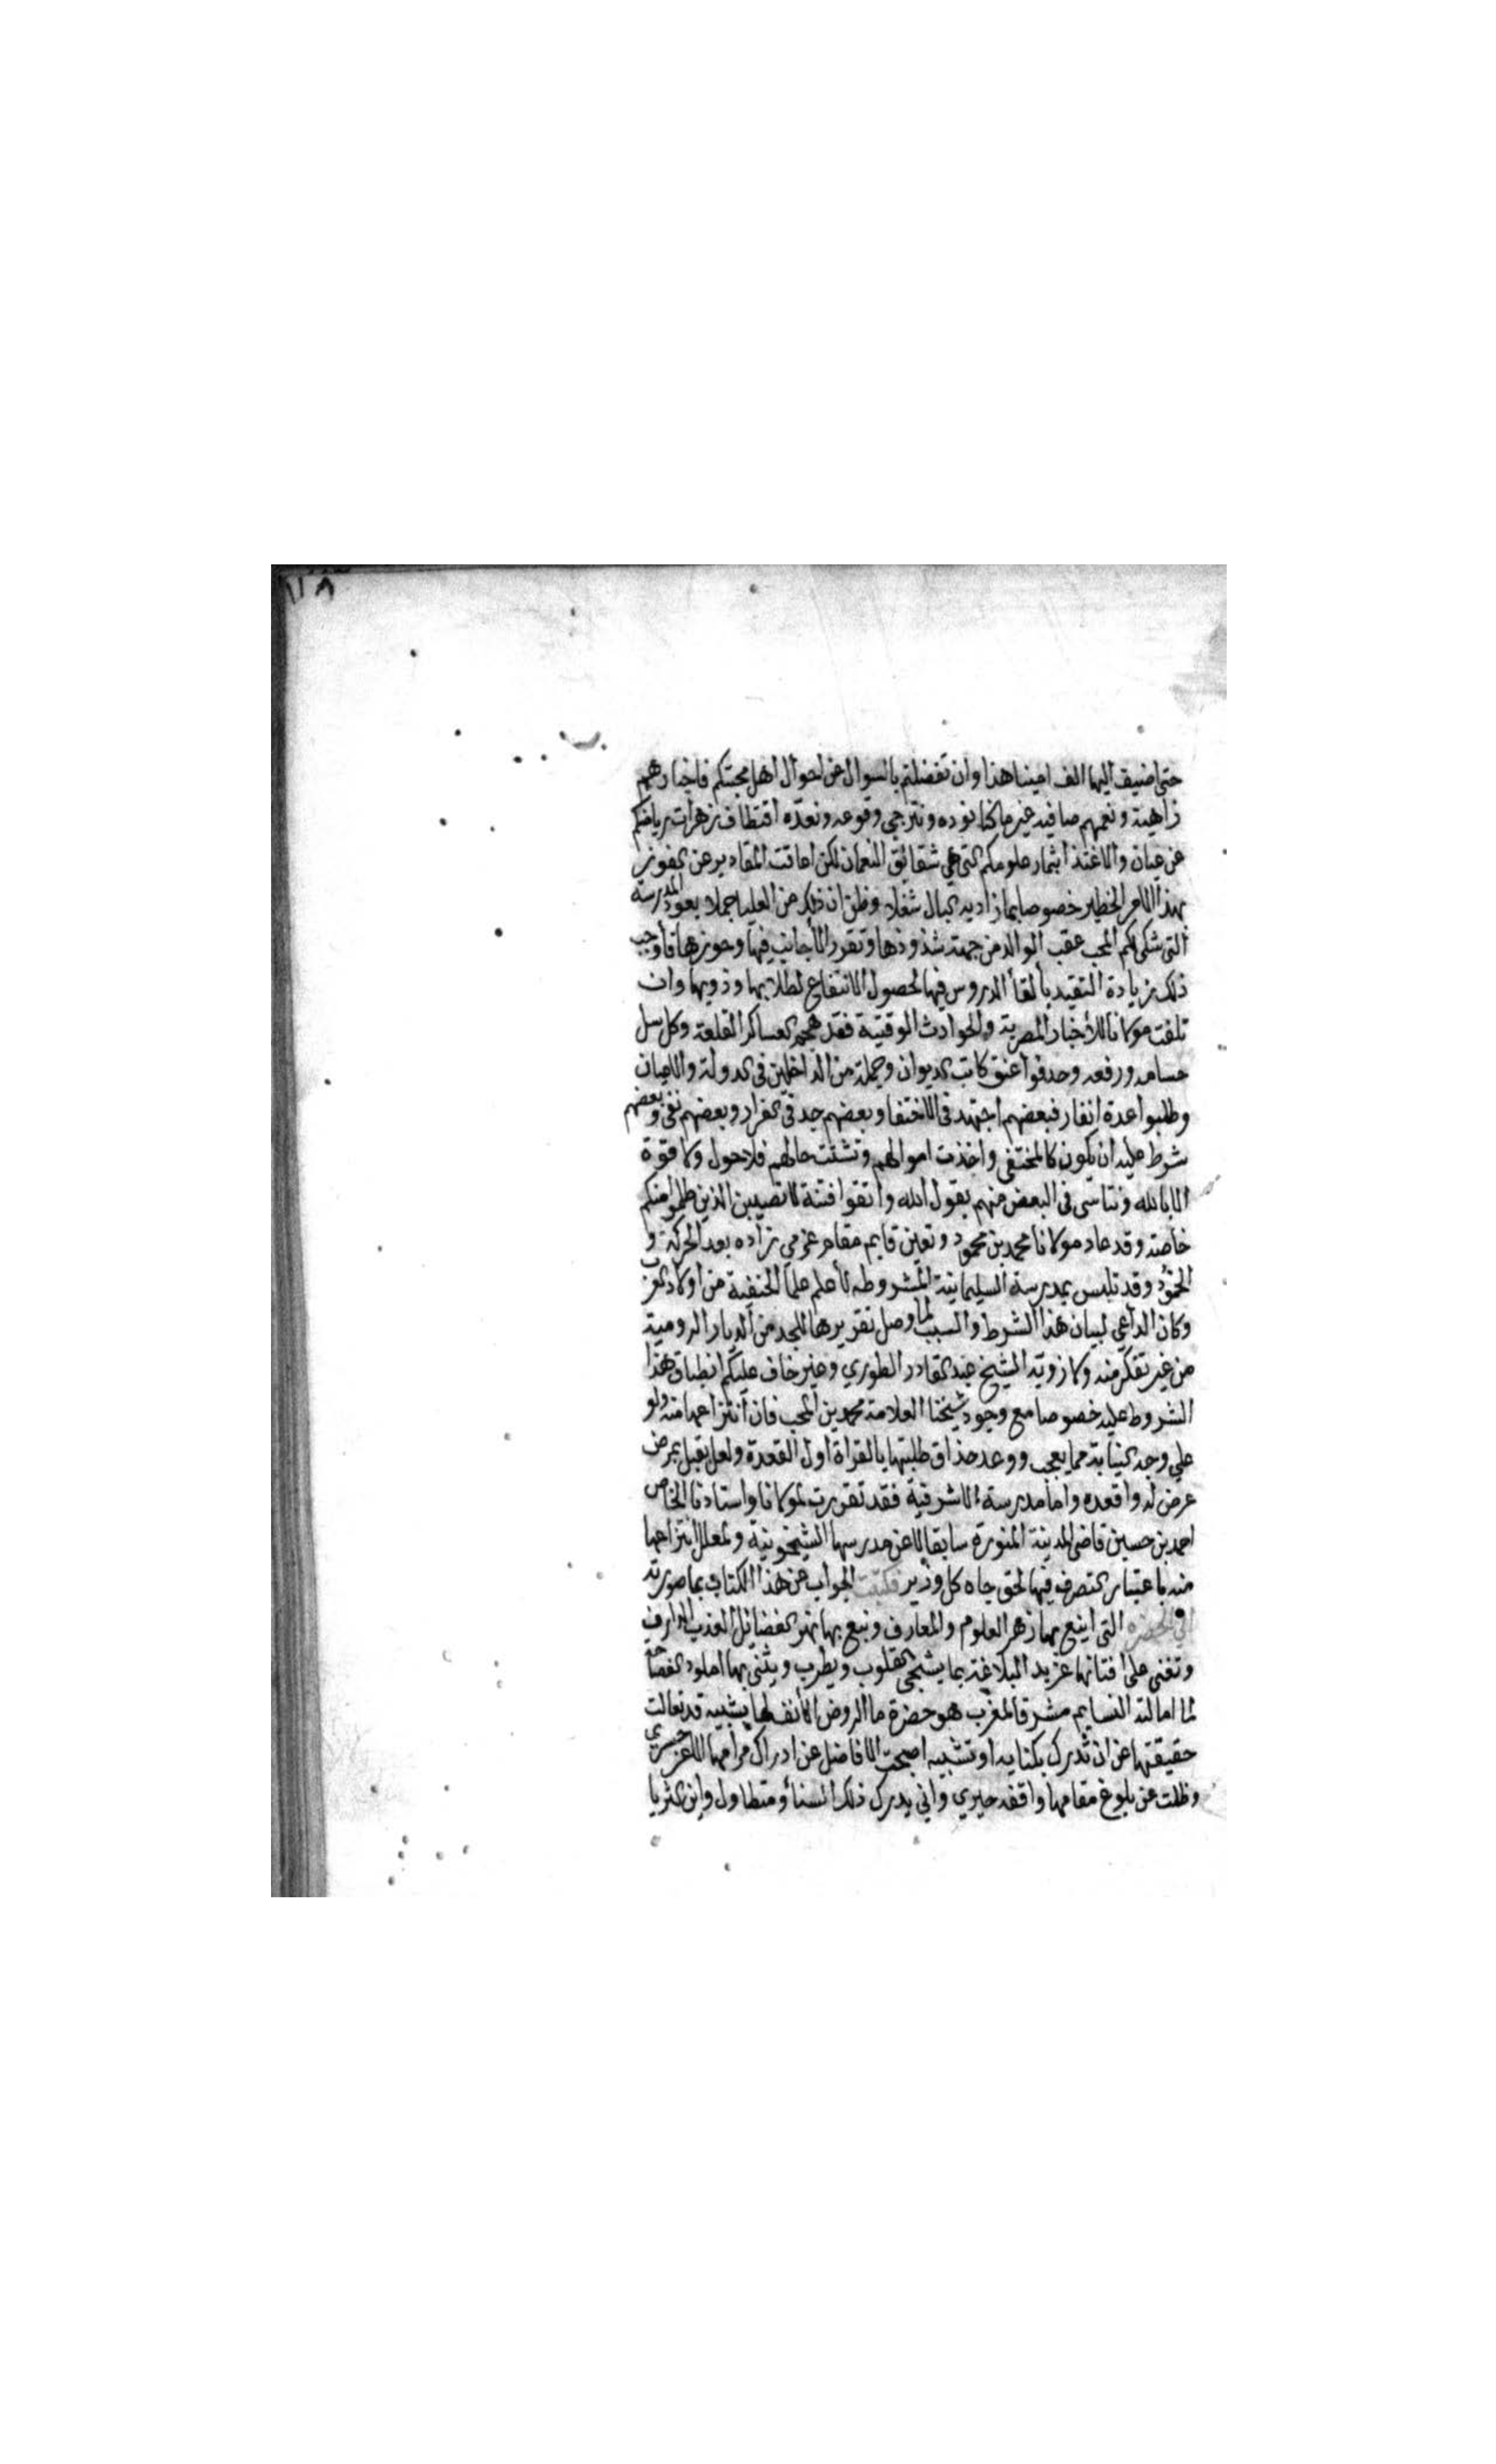 ١١٨
حتى اضيف اليها الف امينا هذا وان تفضلتم بالسوال عن احوال اهل محبتكم فاخبارهم
زاهية ونعمهم صافيه غير ما كنا نوده ونترجي وقوعه ونعده اقتطاف زهرات رياضكم
عن عيان والاغتذا بثمار علومكم التي هي شقائق النعمان لكن اعاقت المقادير عن الفوز
بهذا الامر الخطير خصوصا بما زاد به البال شغلا وظن ان ذلك من العليا جملا بعود المدرسة
التي شكى لكم المحب عقب الوالد من جهة شذوذها وتقرد الاجانب فيها وحوزها فأوجب
ذلك زيادة التقيد بألقأ الدروس فيها لحصول الانتفاع لطلابها وذويها وان
تلفت مولانا للأخبار المصرية والحوادث الوقتية فقد هجم العساكر القلعة وكل سل
حسامه ورفعه وحذفوا عنق كاتب الديوان وجملة من الداخلين في الدولة والاعيان
وطلبوا عدة انفار فبعضهم اجتهد في الاختفا وبعضهم جد في الفرار وبعضهم نفى وبعضهم
شرط عليه ان يكون كالمختفي واخذت اموالهم وتشتت حالهم فلا حول ولا قوة
الا بالله ونتاسى في البعض منهم بقول الله واتقوا فتنة لا تصيبن الذين ظلموا منكم
خاصة وقد عاد مولانا محمد بن محمود وتعين قايم مقام عزمي زاده بعد الحركة و
الخمود وقد تلبس بمدرسة السليمانية المشروطه لأعلم علما الحنفية من اولاد العرب
وكان الداعي لبيان هذا الشرط والسبب لما وصل تقريرها للجد من الديار الرومية
من غير تفكر منه ولا روية الشيخ عبد القادر الطوري وغير خاف عليكم انطباق هذا
الشروط عليه خصوصا مع وجود شيخنا العلامة محمد بن المحب فان انتزاعها منه ولو
علي وجه النيابة مما يعجب ووعد حذاق طلبتها بالقراة اول القعدة ولعل يقبل بمرض
عرض له واقعده واما مدرسة الاشرفية فقد تقررت لمولانا واستادنا الخاص
احمد بن حسين قاضي المدينة المنورة سابقا لا عن مدرسها الشيخونية ولعل انتزاعها
منه باعتبار التصرف فيها لحق جاه كل وزير فكتبت الجواب عن هذا الكتاب بما صورته
الي الحضرة التي اينع بها زهر العلوم والمعارف ونبع بها نهر الفضائل العذب الوارف
وتغنى على افنانها غريد البلاغة بما يشجي القلوب ويطرب ويثنى بها املود الفصاحة
لما امالته النسايم مشرقا لمغرب هو حضرة ما الروض الأنف لها بشبيه قد تعالت
حقيقتها عن ان تدرك بكنايه او تشبيه اصبحت الافاضل عن ادراك مرامها الاعز حسري
وظلت عن بلوغ مقامها واقفه حيري واني يدرك ذلك السنأ ومتطاول واين الثريا